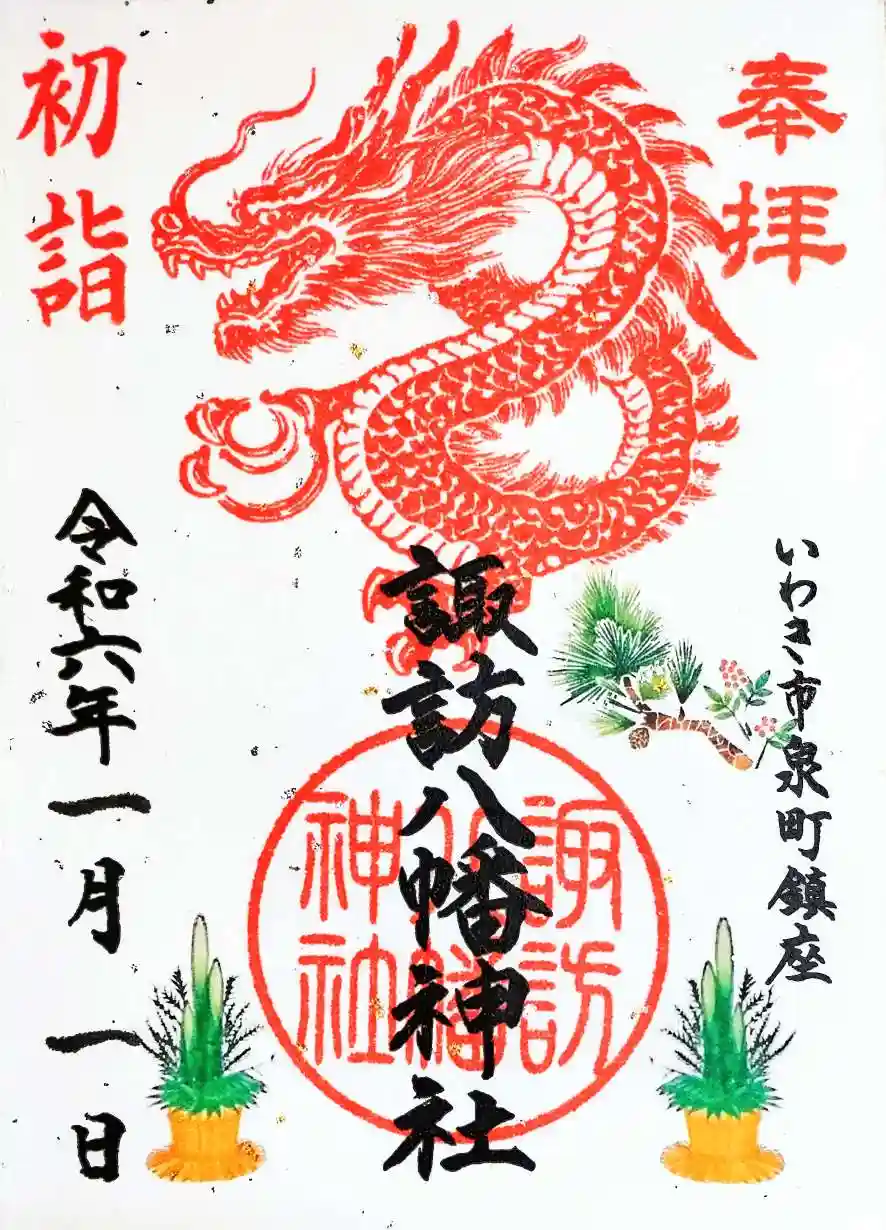 奉拝
いわき市泉町鎮座
諏訪八幡神社
諏訪
八幡
神社
初詣
令和六年一月一日